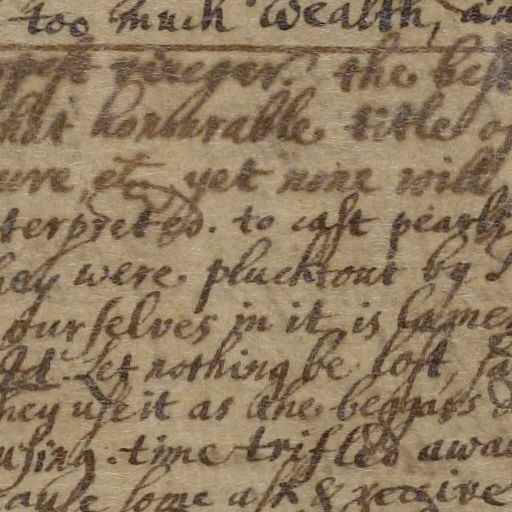 too much Wealth, an
vinegar. the best
that honourable title of
ure, etc yet none will
terpreted. to cast pearls
hey were pluckt out by
ourselves in it is lamen
Let nothing be lost,
hey use it as the beggars d
using. time trifled awa
ause some ask & receive